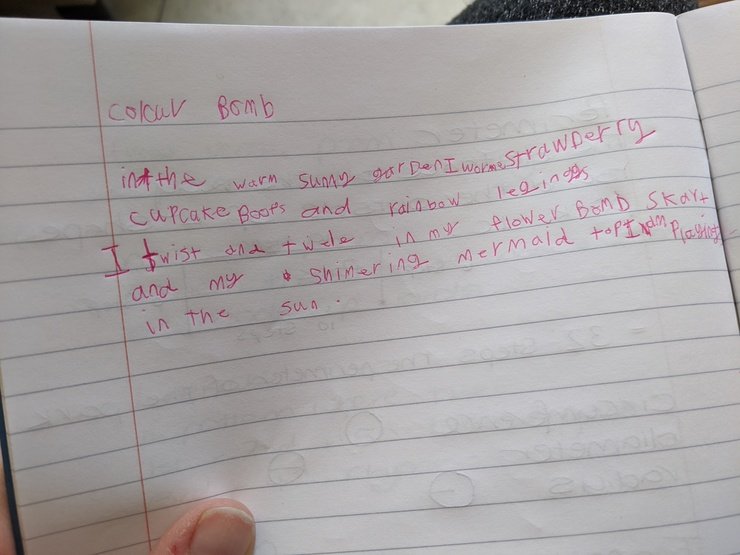 colour Bomb
in the warm sunny garden I worme strawberry
cupcake Boots and rainbow legings
I twist and twide in my flower BomB skart
and my shimering mermaid top I am Playing
in the sun.